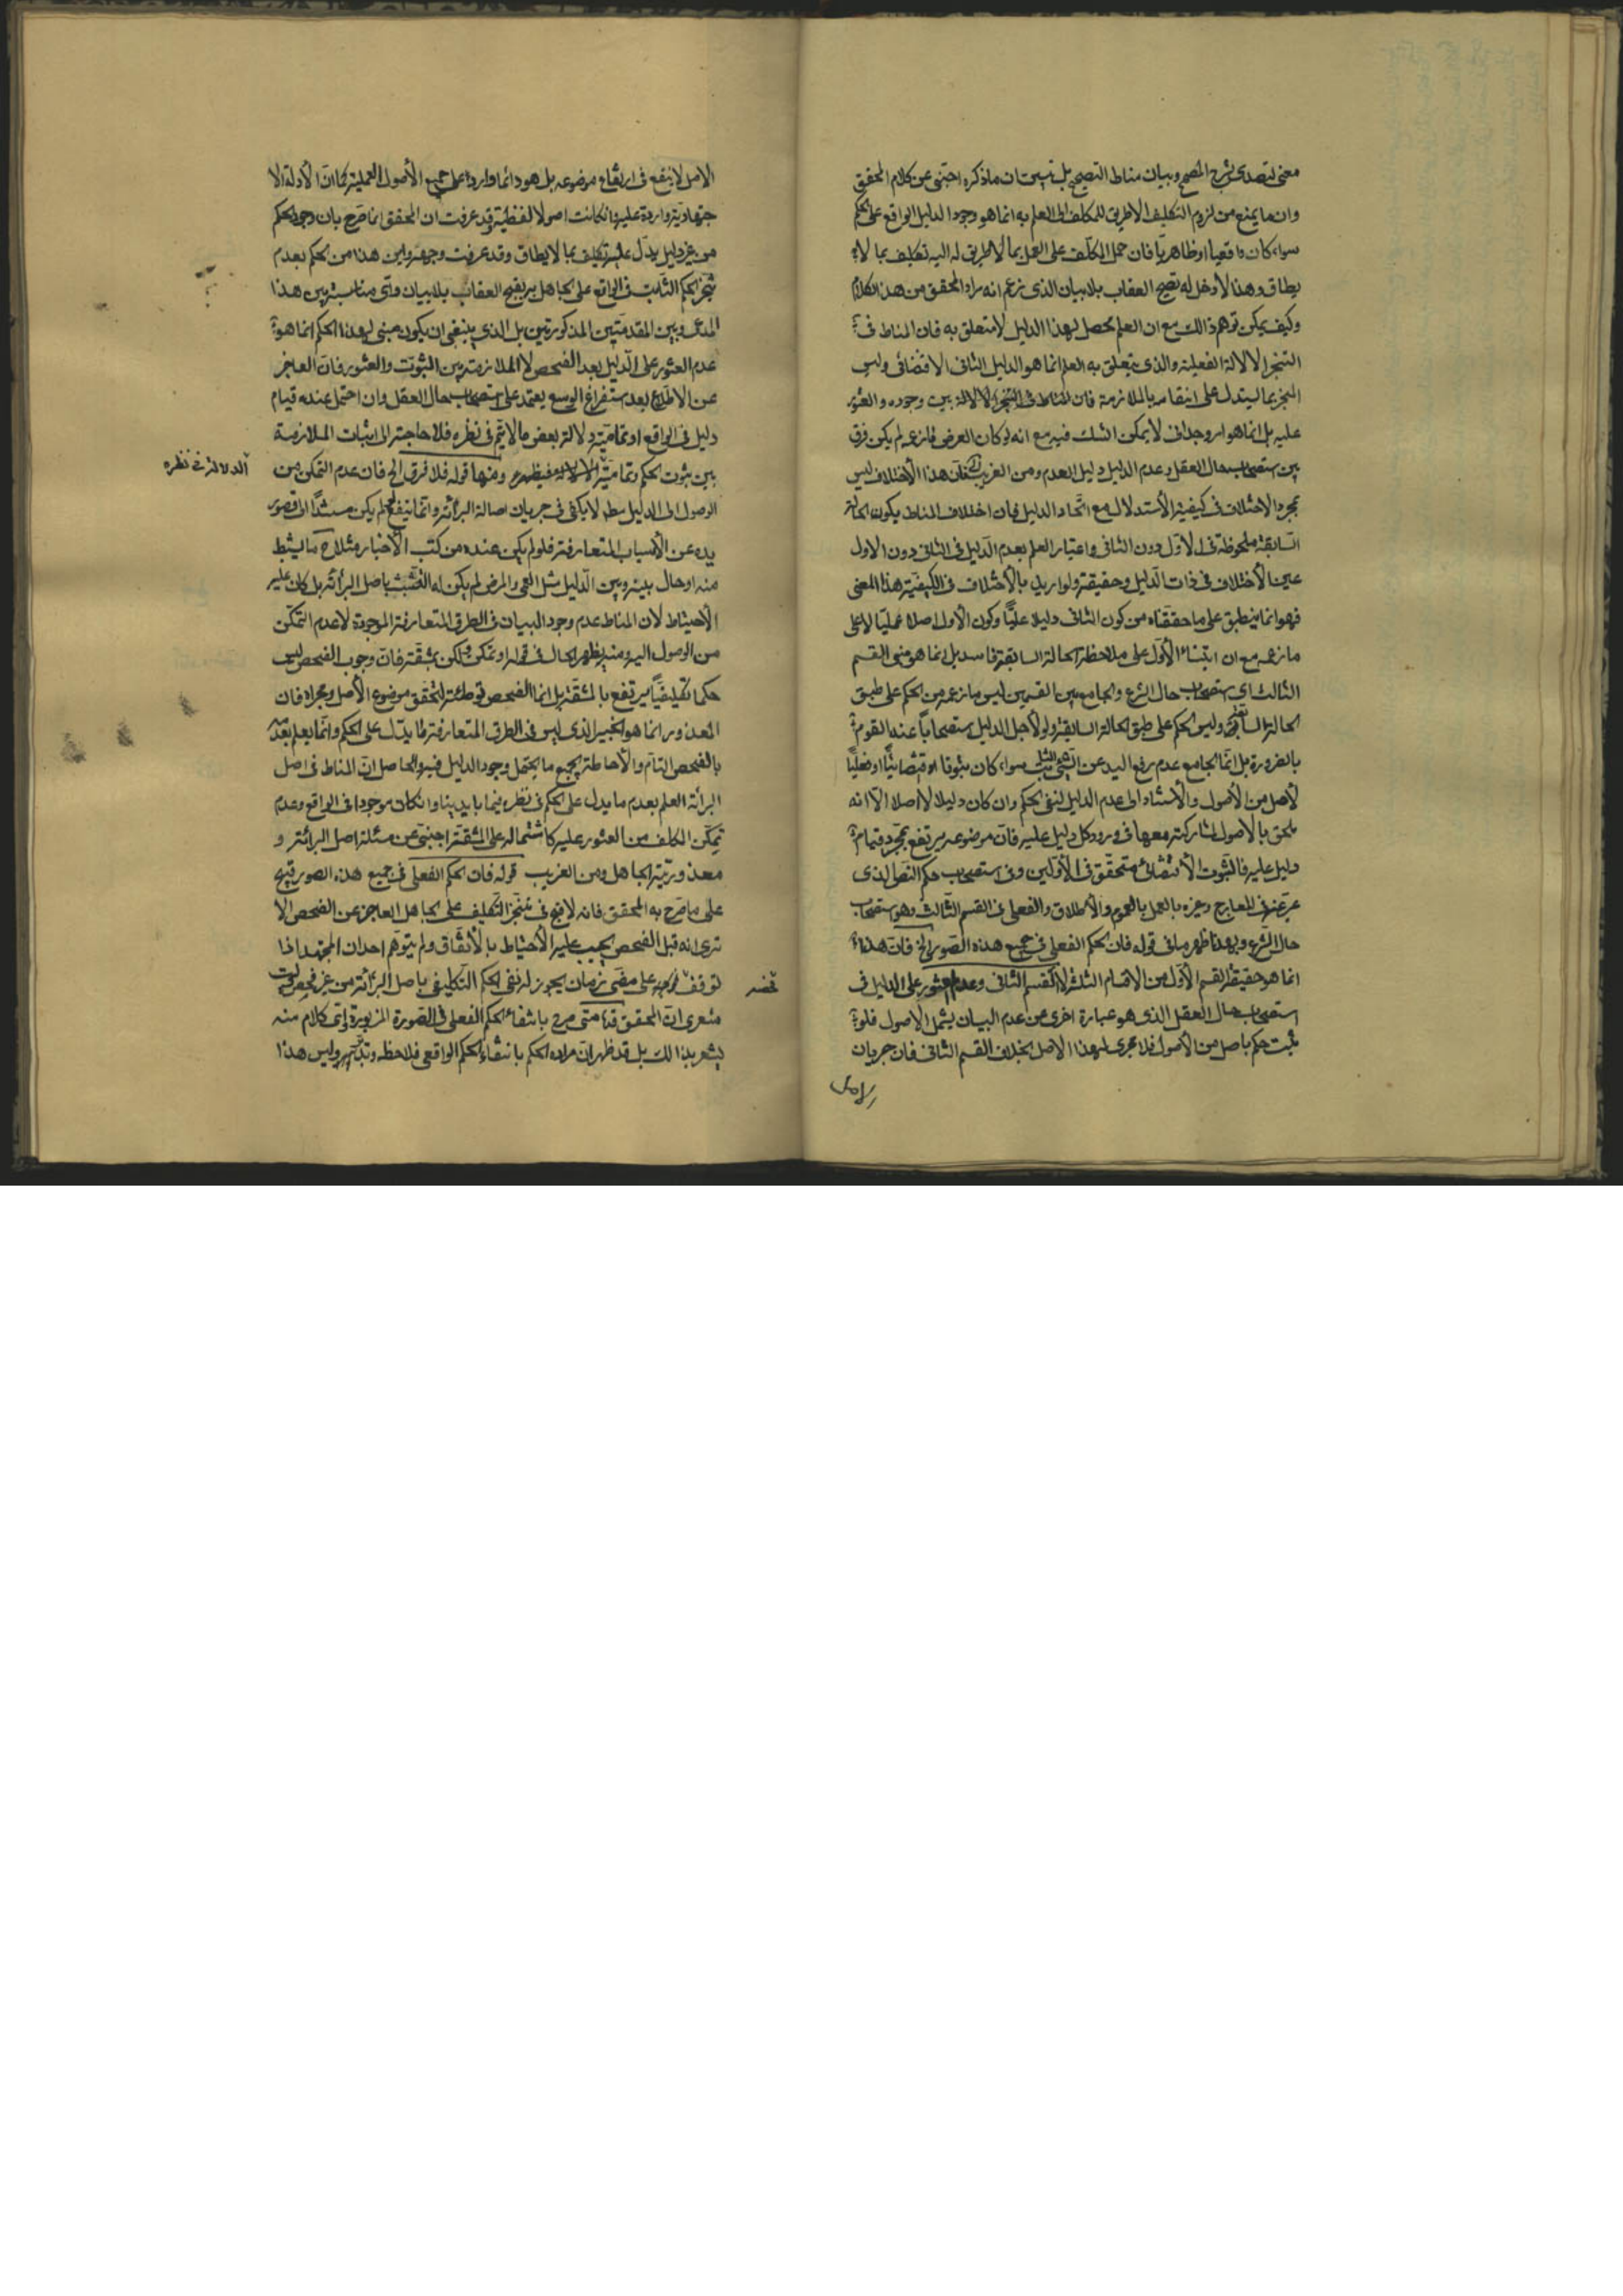 معنى لتصدى لشرح المصحح وبيان مناط التصحيح بل تبين ان ماذكره اجنبى عن كلام المحقق
وان ما يمنع من لزوم التكليف الاطريق للمكلف الى العلم به انما هو وجود الدليل الواقع على الحكم
سواء كان واقعيا او ظاهريا فان حمل المكلف على العمل بما لا طريق له اليه تكليف بما لا
يطاق وهذا لا دخل له بقبح العقاب بلا بيان الذى زعم انه مراد المحقق من هذا الكلام
وكيف يمكن توهم ذالك مع ان العلم يحصل لهذا الدليل لا متعلق به فان المناط فى
التنجز الالالة الفعلية والذى يتعلق به العلم انما هو الدليل الثانى الاقتضائى وليس
التنجز بما ليتدل على انتفائه بالملازمة فان المناط فى التنجز الالالة بين وجوده والعثور
عليه بل انما هو امر وجدانى لا يمكن الشك فيه مع انه لو كان الغرض مازعم لم يكن فرق
بين استصحاب حال العقل وعدم الدليل دليل العدم ومن الغريب ان هذا الاختلاف ليس
بمجرد الاختلاف فى كيفية الأستدلال مع اتحاد الدليل فان اختلاف المناط بكون الحالة
السابقة ملحوظة فى الاول دون الثانى واعتبار العلم بعدم الدليل فى الثانى دون الاول
عين الأختلاف فى ذات الدليل وحقيقته ولو اريد بالأختلاف فى الكيفية هذا المعنى
فهو انما ينطبق على ما حققناه من كون الثانى دليلا علميًا وكون الأول اصلا عمليًا لا على
مازعمه مع ان ابتناء الأول على ملاحظة الحالة السابقة فاسد بل انما هو مبنى القسم
الثالث اى استصحاب حال الشرع والجامع بين القسمين ليس مازعمه من الحكم على طبق
الحالة السابقة وليس الحكم على طبق الحالة السابقة ولو لأجل الدليل استصحاباً عند القوم
بالضرورة بل انما الجامع عدم رفع اليد عن الشئ الثابت سواء كان ثبوتا اقتضائيًا او فعليًا
لأصل من الأصول والأستناد الى عدم الدليل لنفى الحكم وان كان دليلا لا اصلا الا انه
ملحق بالاصول لمشاركته معها فى ورود كل دليل عليه فان موضوعه يرتفع بمجرد قيام
دليل عليه فالثبوت الأقتضائى متحقق فى الأولين وفى استصحاب حكم النص الذى
عبر عنه فى المعارج وغيره بالعمل بالعموم والأطلاق والفعلى فى القسم الثالث وهو استصحاب
حال الشرع وبهذا ظهر ما فى قوله فان الحكم الفعلى فى جميع هذه الصور الخ فان هذا
انما هو حقيقة القسم الأول من الاقسام الثلث لا القسم الثانى وعدم العثور على الدليل فى
استصحاب حال العقل الذى هو عبارة اخرى عن عدم البيان يشمل الاصول فلو
ثبت حكم باصل من الأصول فلا مجرى لهذا الاصل بخلاف القسم الثانى فان جريان
الاصل
الاصل لا ينفع فى ارتفاع موضوعه بل هو دائما وارد على جميع الأصول العملية كما ان الأدلة الا
جتهادية واردة عليه وان كانت اصولا لفظية وقد عرفت ان المحقق انما صرح بان وجود الحكم
من غير دليل يدل عليه تكليف بما لا يطاق وقد عرفت وجهه واين هذا من الحكم بعدم
تنجز الحكم الثابت فى الواقع على الجاهل بقبح العقاب بلا بيان واى مناسبة بين هذا
المدعى وبين المقدمتين المذكورتين بل الذى ينبغى ان يكون مبنى لهذا الحكم انما هو
عدم العثور على الدليل بعد الفحص لا الملازمة بين الثبوت والعثور فان العاجز
عن الاطلاع بعد استفراغ الوسع يعتمد على استصحاب حال العقل وان احتمل عنده قيام
دليل فى الواقع او تمامية دلالة بعض ما لا يتم فى نظره فلا حاجة الى اثبات الملازمة
بين ثبوت الحكم وتمامية ومنها قوله فلا فرق الخ فان عدم التمكن من
الدلالة فى نظره
الوصول الى الدليل لا يكفى فى جريان اصالة البرائة وانما ينفع لم يكن مستندًا الى قصور
يده عن الأسباب المتعارفة فلو لم يكن عنده من كتب الأخبار مثلا ما يستنبط
منه او حال بينه وبين الدليل مثل العمى والمرض لم يكن له التشبث باصل البرائة بل كان عليه
الأحتياط لان المناط عدم وجود البيان فى الطرق المتعارفة الموجودة لا عدم التمكن
من الوصول اليه ومنه يظهر الحال فى قوله او تمكن ولكن بمشقة فان وجوب الفحص ليس
حكما تكليفيًا يرتفع بالمشقة بل انما الفحص توطئة لتحقق موضوع الأصل ومجراه فان
المعذور انما هو الخبير الذى ليس فى الطرق المتعارفة ما يدل على الحكم وانما يعلم بعدمه
بالفحص التام والأحاطة بجميع ما يحتمل وجود الدليل فيه والحاصل ان المناط فى اصل
البرائة العلم بعدم ما يدل على الحكم فى نظره فيما بايدينا وان كان موجودا فى الواقع وعدم
تمكن المكلف من العثور عليه كاشتماله على المشقة اجنبى عن مسئلة اصل البرائة و
معذورية الجاهل ومن الغريب قوله فان الحكم الفعلى فى جميع هذه الصور قبيح
على ما صرح به المحقق فانه لا قبح فى تنجز التكليف على الجاهل العاجز عن الفحص الا
ترى انه قبل الفحص يجب عليه الأحتياط بالأتفاق ولم يتوهم احد ان المجتهد اذا
توقف على مضى زمان يجوز له نفى الحكم التكليفى باصل البرائة من غير فحص وليت
فحصه
شعرى ان المحقق قده متى صرح بانتفاء الحكم الفعلى فى الصورة المزبورة واى كلام منه
يشعر بذالك بل قد ظهر ان مراده الحكم بانتفاء الحكم الواقعى فلاحظه وتدبر وليس هذا